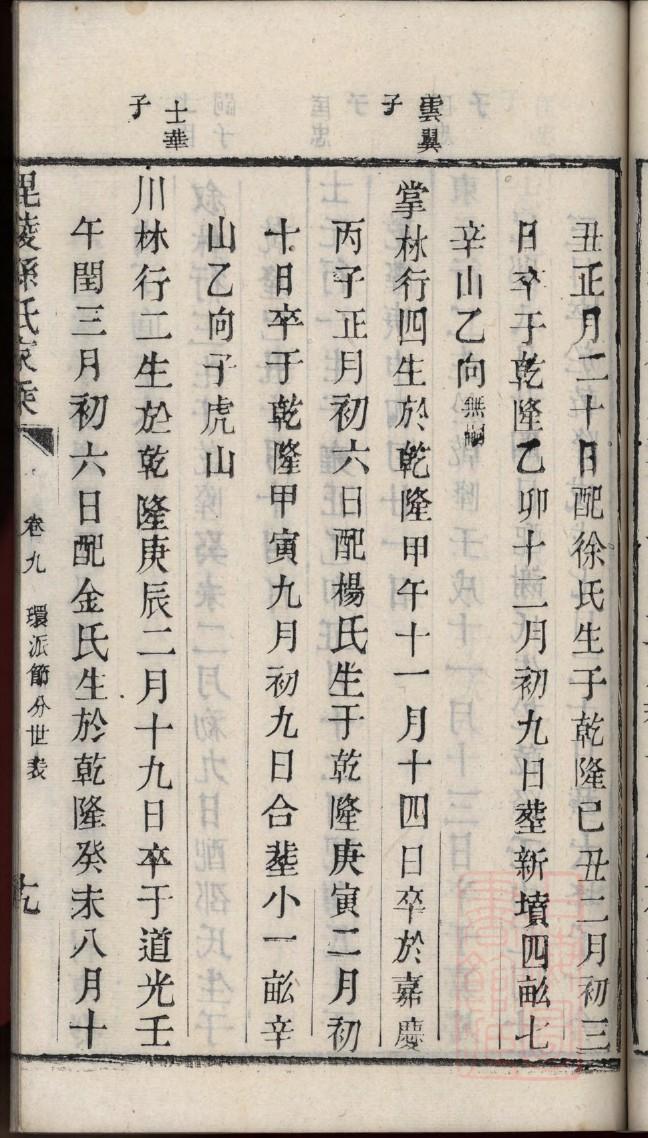 丑正月二十日配徐氏生于乾隆己丑二月初三
日卒于乾隆乙卯十二月初九日塟新墳四畝七
辛山乙向無嗣
雲翼
子
掌林行四生於乾隆甲午十一月十四日卒於嘉慶
丙子正月初六日配楊氏生于乾隆庚寅二月初
十日卒于乾隆甲寅九月初九日合塟小一畝辛
山乙向子虎山
士華
子
川林行二生於乾隆庚辰二月十九日卒于道光壬
午閏三月初六日配金氏生於乾隆癸未八月十
毘陵孫氏家乘
卷九 環派節分世表
十九